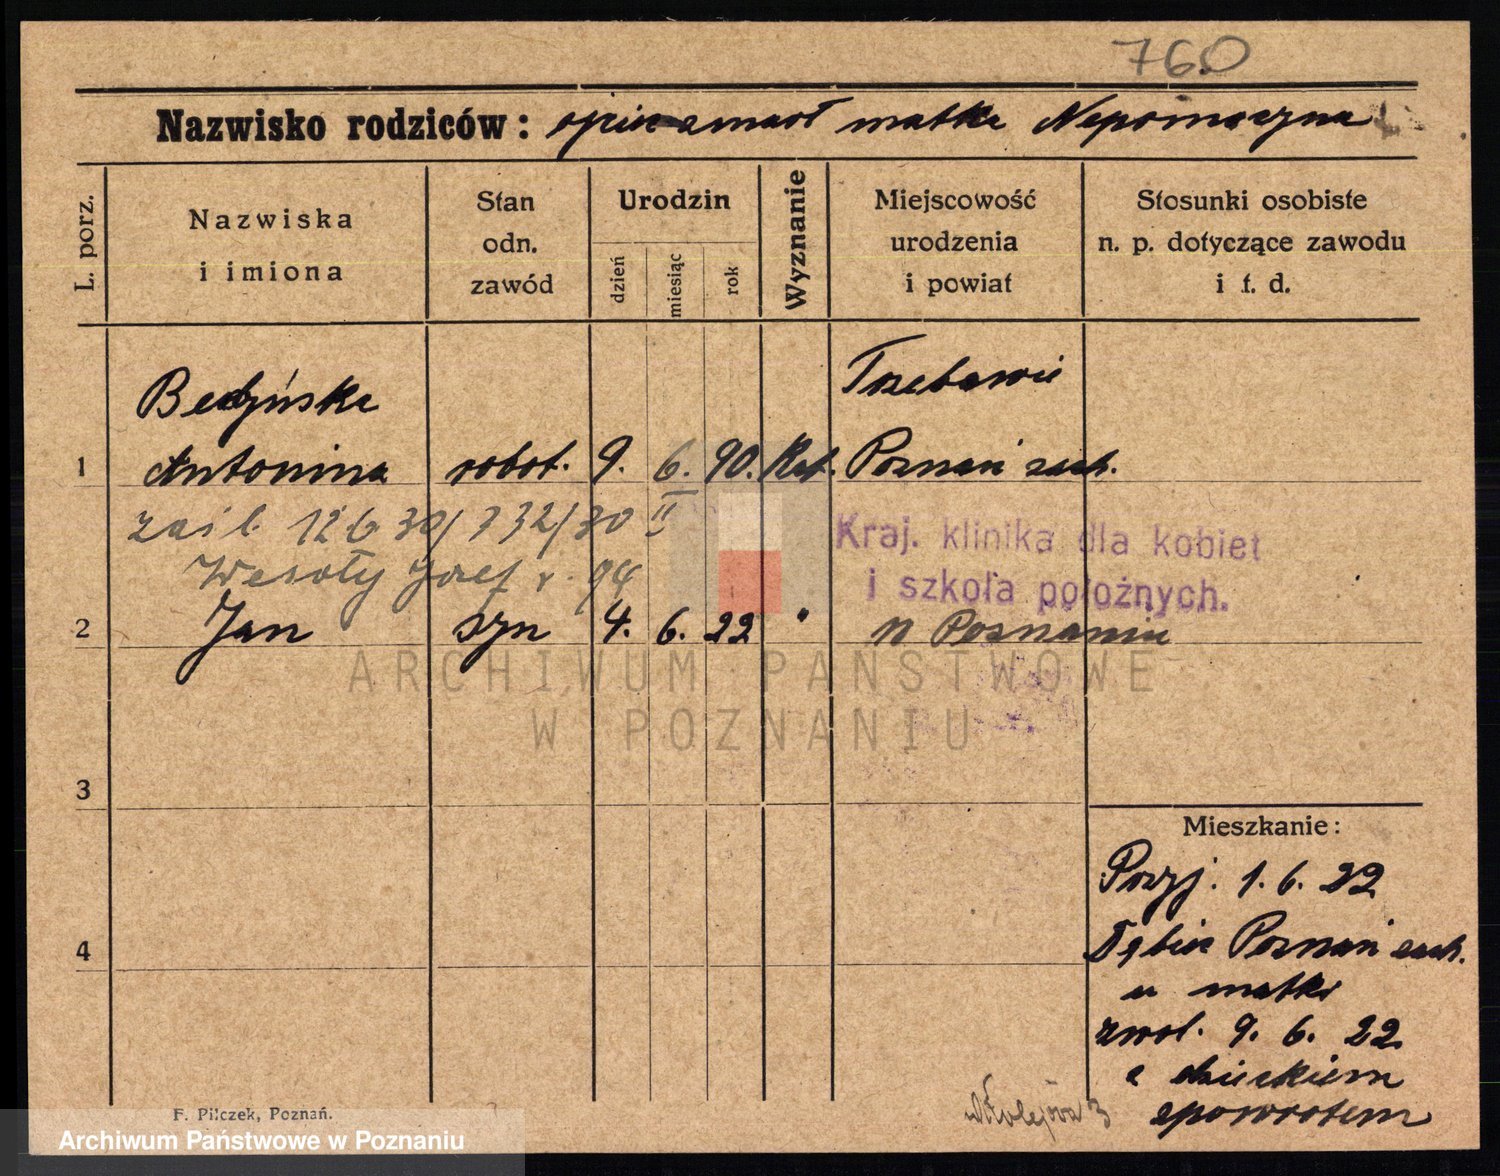 760
Nazwisko rodziców: ojciec zmarł matka Nepomucyna
L. porz.
Nazwiska
i imiona
Stan
odn.
zawód
Urodzin
dzień
miesiąc
rok
Wyznanie
Miejscowość
urodzenia
i powiat
Stosunki osobiste
n. p. dotyczące zawodu
i t. d.
Trzebawie
1 Antonina robot. 9. 6. 90. Kat. Poznań zach.
zaśl. 12 6 30/732/30 II
Kraj. klinika dla kobiet
Wesoły Józef r. 94
i szkoła położnych.
2 Jan syn 4. 6. 22 " w Poznaniu
ARCHIWUM PAŃSTWOWE
W POZNANIU
3
Mieszkanie:
Przyj. 1. 6. 22
4
Dębiec Poznań zach.
u matki
zwol. 9. 6. 22
z dzieckiem
zpowrotem
Kolejowa 3
F. Pilczek, Poznań.
Archiwum Państwowe w Poznaniu